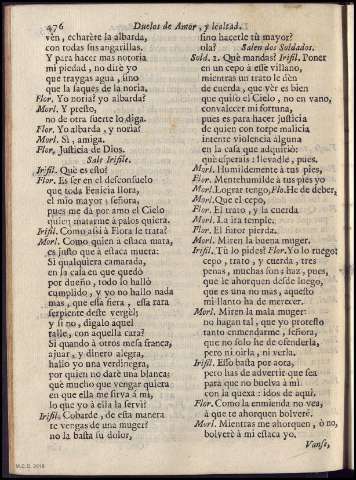 476 Duelos de Amor, y lealtad.
vèn, echarète la albarda,
con todas sus angarillas.
Y para hacer mas notoria
mi piedad, no dirè yo
que traygas agua, sino
que la saques de la noria.
Flor. Yo noria? yo albarda?
Morl. Y presto,
no de otra suerte lo diga.
Flor. Yo albarda, y noria?
Morl. Sì, amiga.
Flor. Justicia de Dios.
Sale Irifile.
Irifil. Què es esto?
Flor. Es ser en el desconsuelo
que toda Fenicia llora,
el mio mayor; señora,
pues me dà por amo el Cielo
quien matarme à palos quiera.
Irifil. Como asi à Flora le trata?
Morl. Como quien à estaca mata,
es justo que à estaca muera:
Si qualquiera camarada,
en la casa en que quedò
por dueño, todo lo hallò
cumplido, y yo no hallo nada
mas, que esta fiera, esta rara
serpiente deste vergel;
y si no, digalo aquel
talle, con aquella cara?
Si quando à otros mesa franca,
ajuar, y dinero alegra,
hallo yo una verdinegra,
por quien no darè una blanca;
què mucho que vengar quiera
en que ella me sirva à mi,
lo que yo à ella la servì?
Irifil. Cobarde, de esta manera
te vengas de una muger?
no la basta su dolor,
sino hacerle tù mayor?
ola? Salen dos Soldados.
Sold. 2. Què mandas? Irifil. Poner
en un cepo à esse villano,
mientras un trato le dèn
de cuerda, que vèr es bien
que quiso el Cielo, no en vano,
convalecer mi fortuna,
pues es para hacer justicia
de quien con torpe malicia
intente violencia alguna
en la casa que adquiriò:
què esperais? llevadle, pues.
Morl. Humildemente à tus pies,
Flor. Mentehumilde à tus pies yo
Morl. Lograr tengo, Flo. He de deber,
Morl. Que el cepo,
Flor. El trato, y la cuerda
Morl. La ira temple.
Flor. El furor pierda.
Morl. Miren la buena muger.
Irifil. Tù lo pides? Flor. Yo lo ruego:
cepo, trato, y cuerda, tres
penas, muchas son; haz, pues,
que le ahorquen desde luego,
que es una no mas, aquesto
mi llanto ha de merecer.
Morl. Miren la mala muger:
no hagan tal, que yo protesto
tanto enmendarme, señora,
que no solo he de ofenderla,
pero ni oirla, ni verla.
Irifil. Esso basta por aora,
pero has de advertir que sea
para que no buelva à mi
con la quexa: idos de aqui.
Flor. Como la enmienda no vea,
à que te ahorquen bolverè.
Morl. Mientras me ahorquen, ò no,
bolverè à mi estaca yo.
Vanse,
M.C.D. 2018